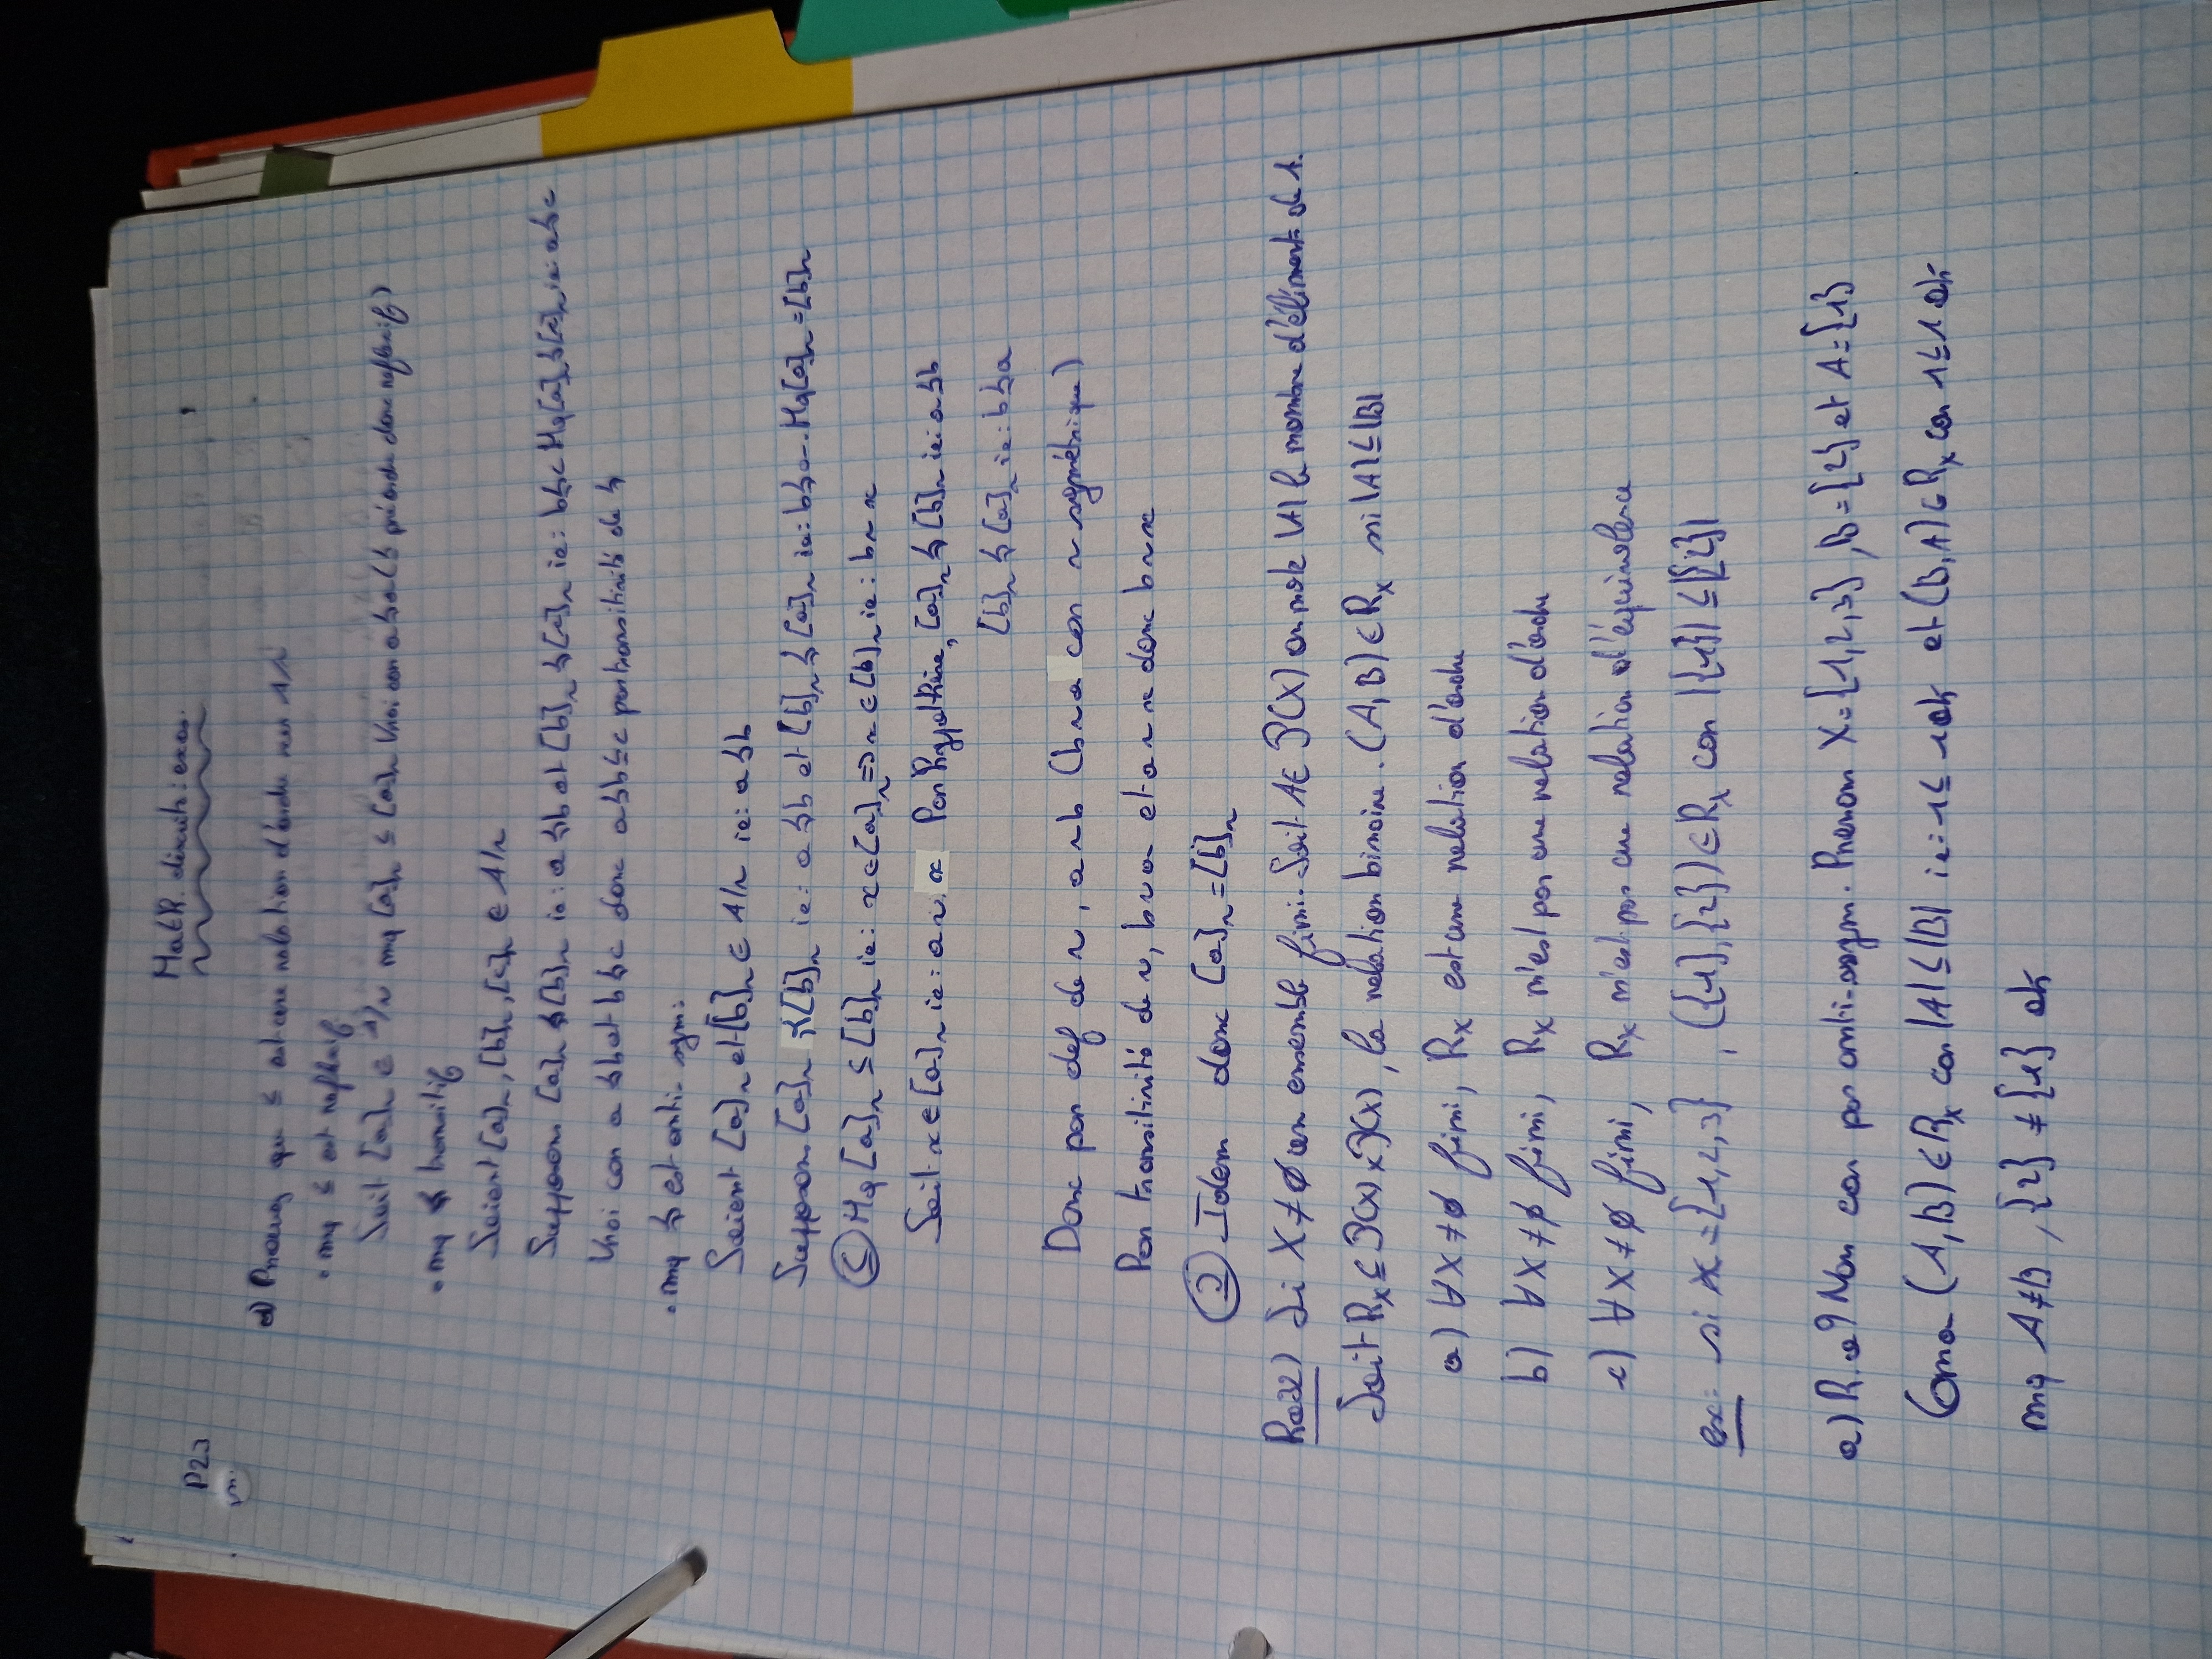 Math. discrète : exos.
P23
d) Prouvez que ≤ est une relation d'ordre sur A/~
• mq ≤ est reflexif
Soit [a]~ ∈ A/~ mq [a]~ ≤ [a]~ Vrai car a ≲ a (≲ préordre donc reflexif)
• mq ≲ transitif
Soient [a]~, [b]~, [c]~ ∈ A/~
Supposons [a]~ ≲ [b]~ ie: a ≲ b et [b]~ ≲ [c]~ ie: b ≲ c Mq [a]~ ≲ [c]~ ie: a ≲ c
Vrai car a ≲ b et b ≲ c donc a ≲ b ≲ c par transitivité de ≲
• mq ≲ est anti-sym:
Soient [a]~ et [b]~ ∈ A/~ ie: a ≲ b
Supposons [a]~ ≲ [b]~ ie: a ≲ b et [b]~ ≲ [a]~ ie: b ≲ a. Mq [a]~ = [b]~
⊆ Mq [a]~ ⊆ [b]~ ie: x ∈ [a]~ => x ∈ [b]~ ie: b ~ x
Soit x ∈ [a]~ ie: a ~ x Par hypothèse, [a]~ ≲ [b]~ ie: a ≲ b
[b]~ ≲ [a]~ ie: b ≲ a
Donc par def de ~, a ~ b (b ~ a car ~ symétrique)
Par transitivité de ~, b ~ a et a ~ x donc b ~ x
⊇ Idem donc [a]~ = [b]~
Si X ≠ ∅ un ensemble fini. Soit A ∈ P(X) on note |A| le nombre d'éléments de A.
Soit Rx ⊆ P(X) x P(X), la relation binaire. (A,B) ∈ Rx si |A| ≤ |B|
a) ∀X ≠ ∅ fini, Rx est une relation d'ordre
b) ∀X ≠ ∅ fini, Rx n'est pas une relation d'ordre
c) ∀X ≠ ∅ fini, Rx n'est pas une relation d'équivalence
ex: si X = {1,2,3} , ({1},{2}) ∈ Rx car |{1}| ≤ |{2}|
a) R.o? Non car pas anti-sym. Prenons X = {1,2,3} , B = {2} et A = {1}
On a (A,B) ∈ Rx car |A| ≤ |B| ie: 1 ≤ 1 ok et (B,A) ∈ Rx car 1 ≤ 1 ok
mq A ≠ B , {2} ≠ {1} ok